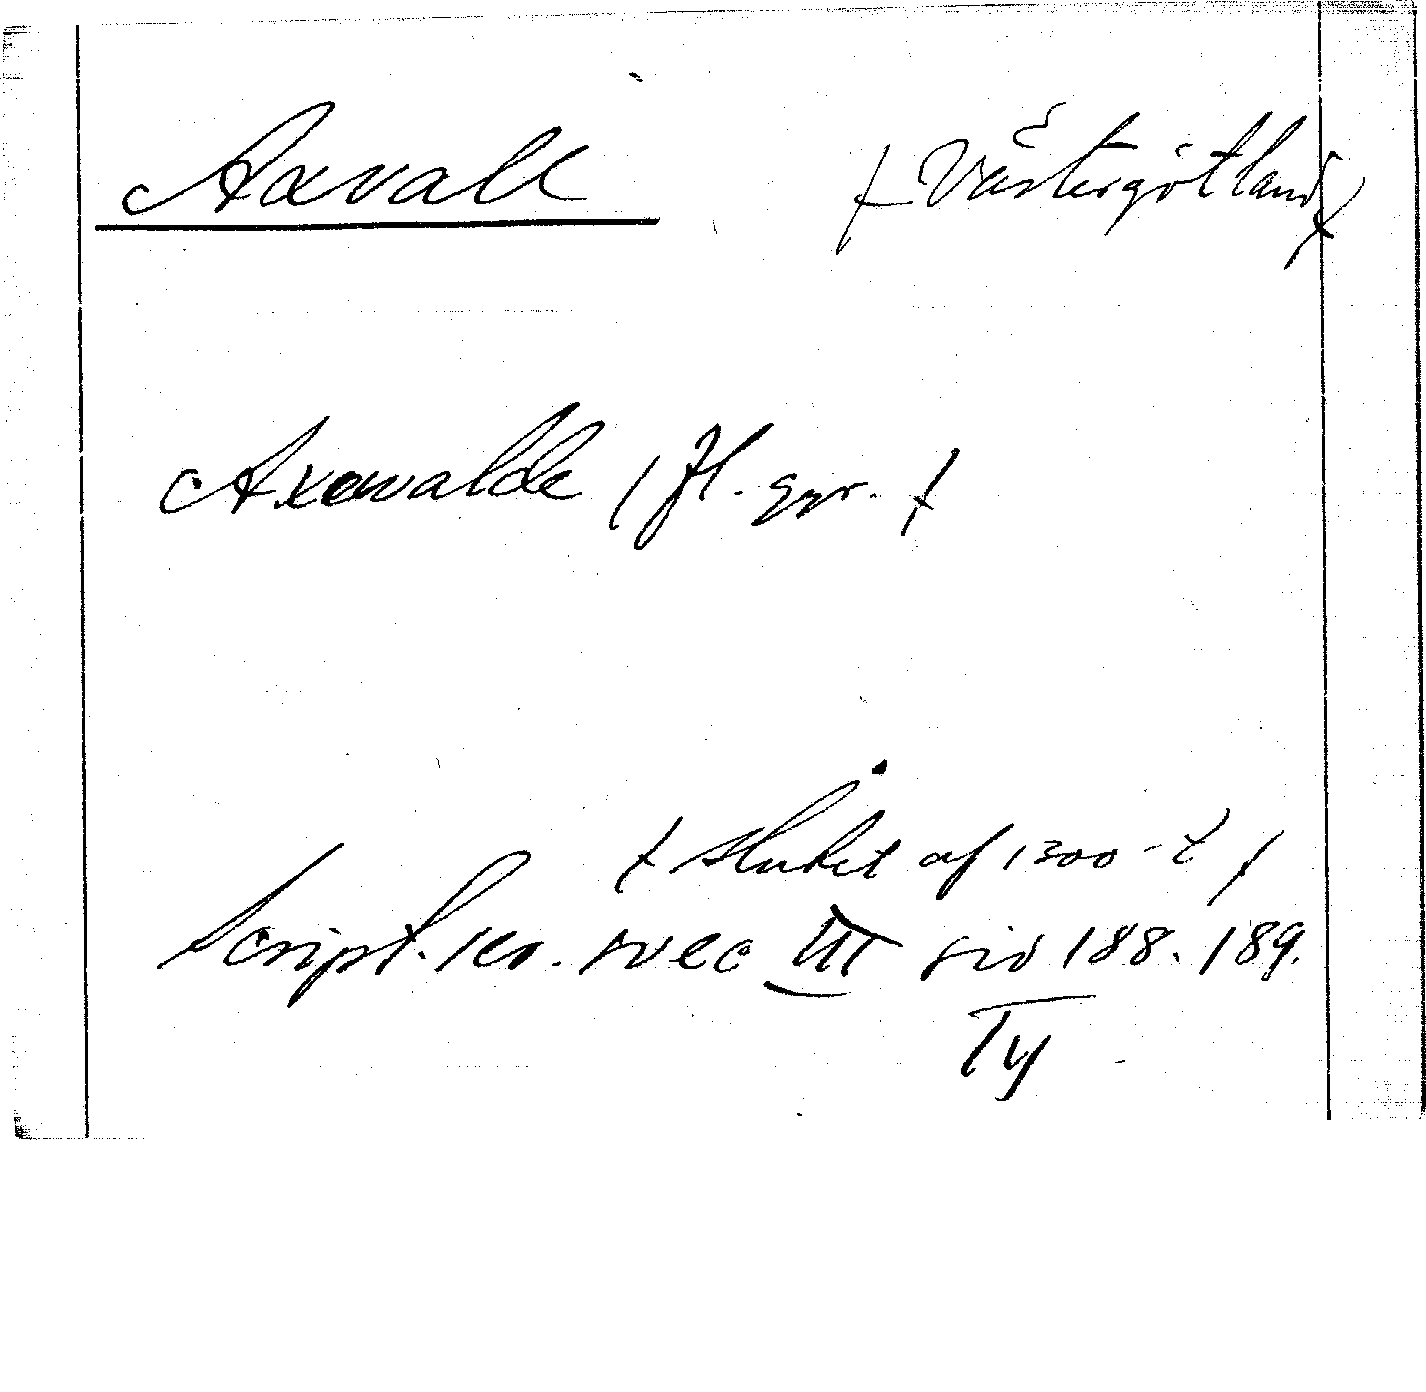 Axvall (Västergötland)
Axewalde (fl. ggr.)
(slutet af 1300-t)
Script. rer. svec III sid 188. 189.
Ty